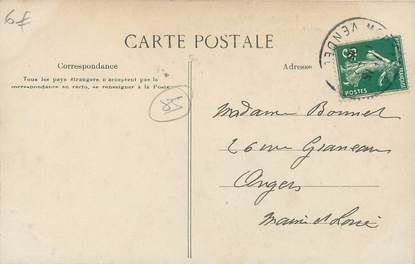 6f
CARTE POSTALE
Correspondance
Tous les pays étrangers n'acceptent pas la
correspondance au recto, se renseigner à la Poste
Adresse
VENDÉE
5
POSTES
85
Madame Bonnet
26 rue
Angers
Maine et Loire